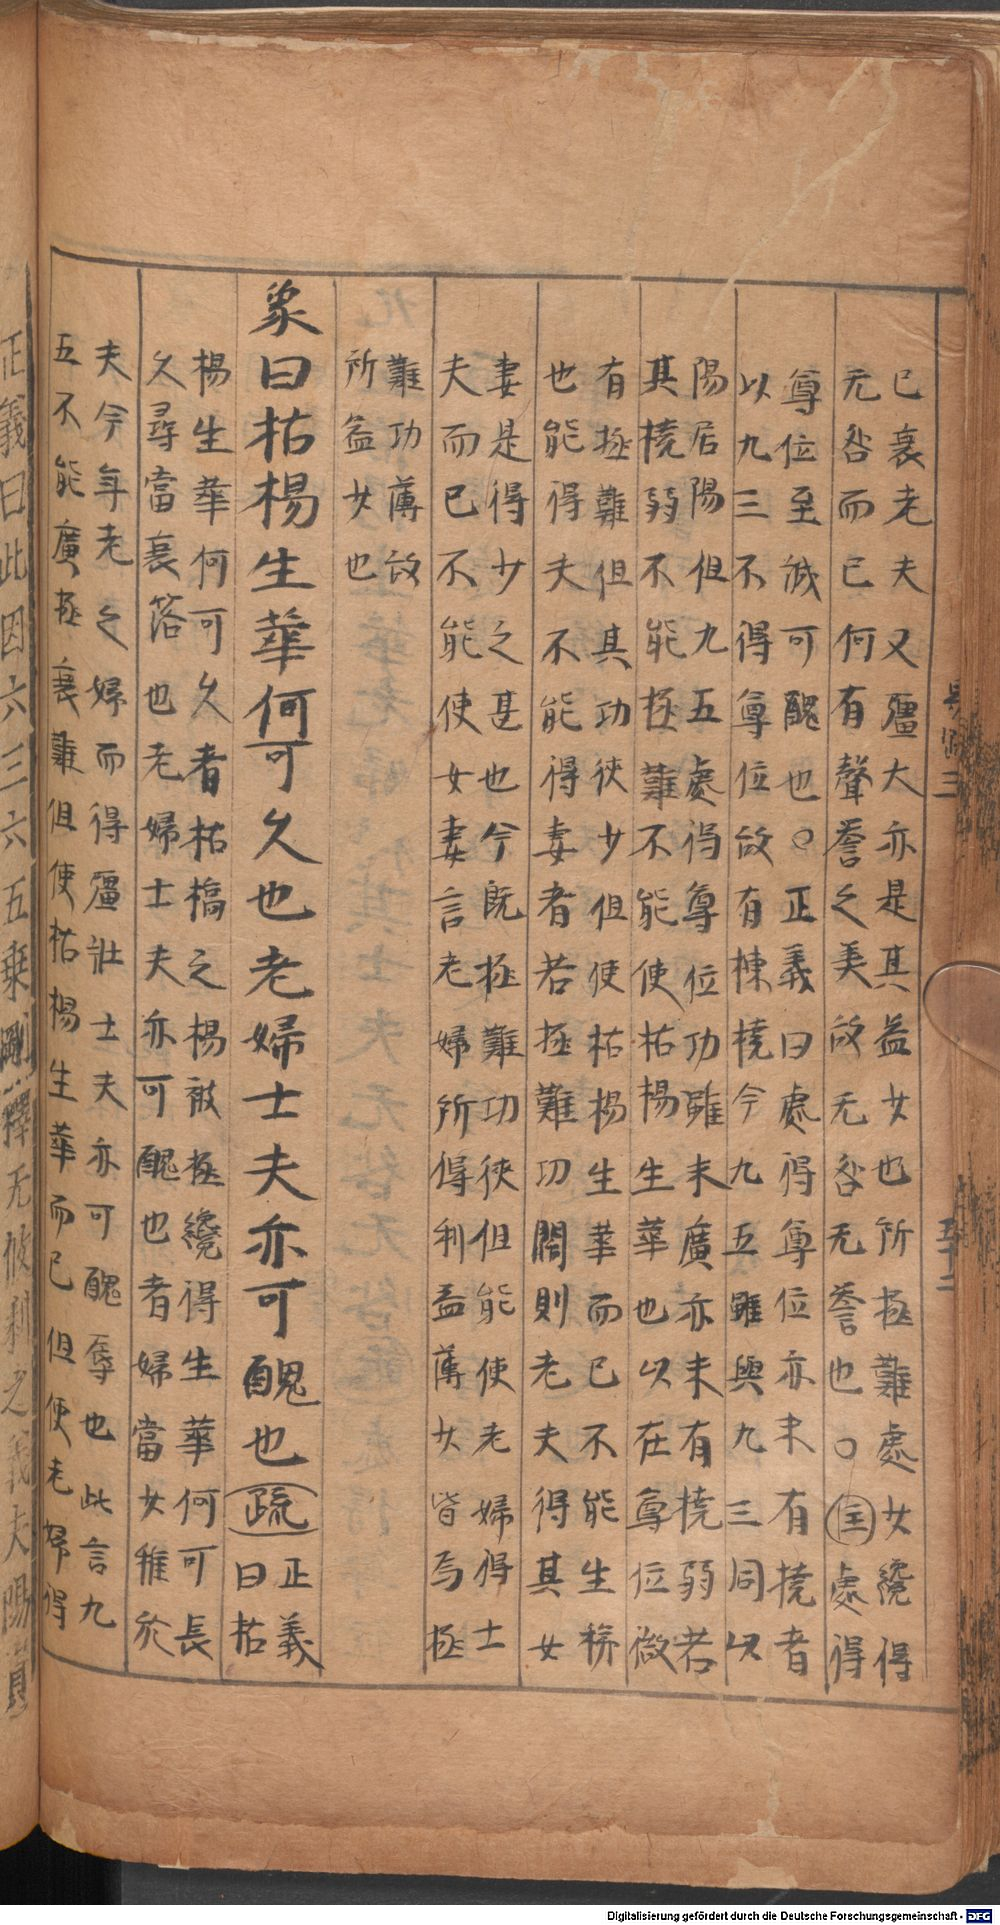 已衰老夫又彊大亦是其益女也所拯難處女纔得
无咎而已何有聲譽之美故无咎无譽也○注處得
尊位至誠可醜也○正義曰處得尊位亦未有橈者
以九三不得尊位故有棟橈今九五雖與九三同以
陽居陽但九五處得尊位功雖未廣亦未有橈弱若
其橈弱不能拯難不能使枯楊生華也以在尊位微
有拯難但其功狹少但使枯楊生華而已不能生稊
也能得夫不能得妻者若拯難功闊則老夫得其女
妻是得少之甚也今既拯難功狹但能使老婦得士
夫而已不能使女妻言老婦所得利益薄女皆爲拯
難功薄故
所益女也
象曰枯楊生華何可久也老婦士夫亦可醜也疏正義
曰枯
楊生華何可久者枯槁之楊被拯纔得生華何可長
久尋當衰落也老婦士夫亦可醜也者婦當女稚於
夫今年老之婦而得彊壯士夫亦可醜辱也此言九
五不能廣拯衰難但使枯楊生華而已但使老婦得
正義曰此因六三六五乘剛釋无攸利之義夫陽貴
易疏三
五十二
Digitalisierung gefördert durch die Deutsche Forschungsgemeinschaft - DFG